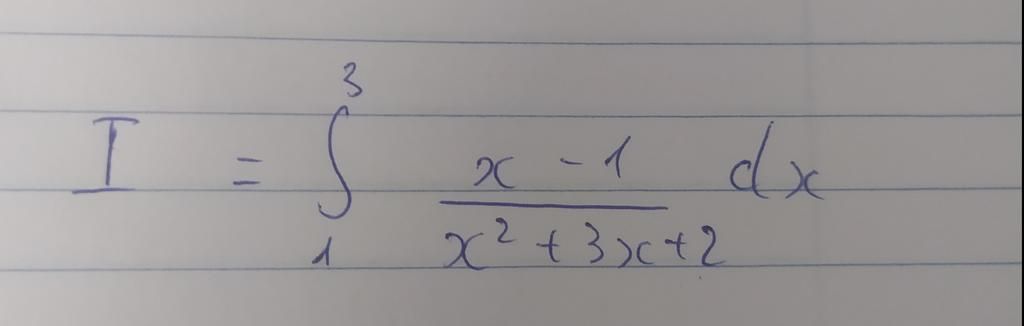 I = ∫₁³ (x - 1)/(x² + 3x + 2) dx